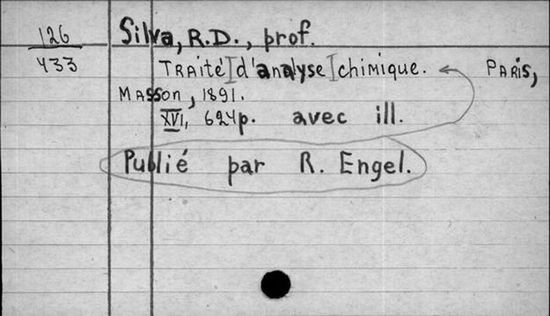 126
433
Silva, R.D., prof.
Traité [d'analyse] chimique. Paris,
Masson, 1891.
XVI, 624p. avec ill.
Publié par R. Engel.